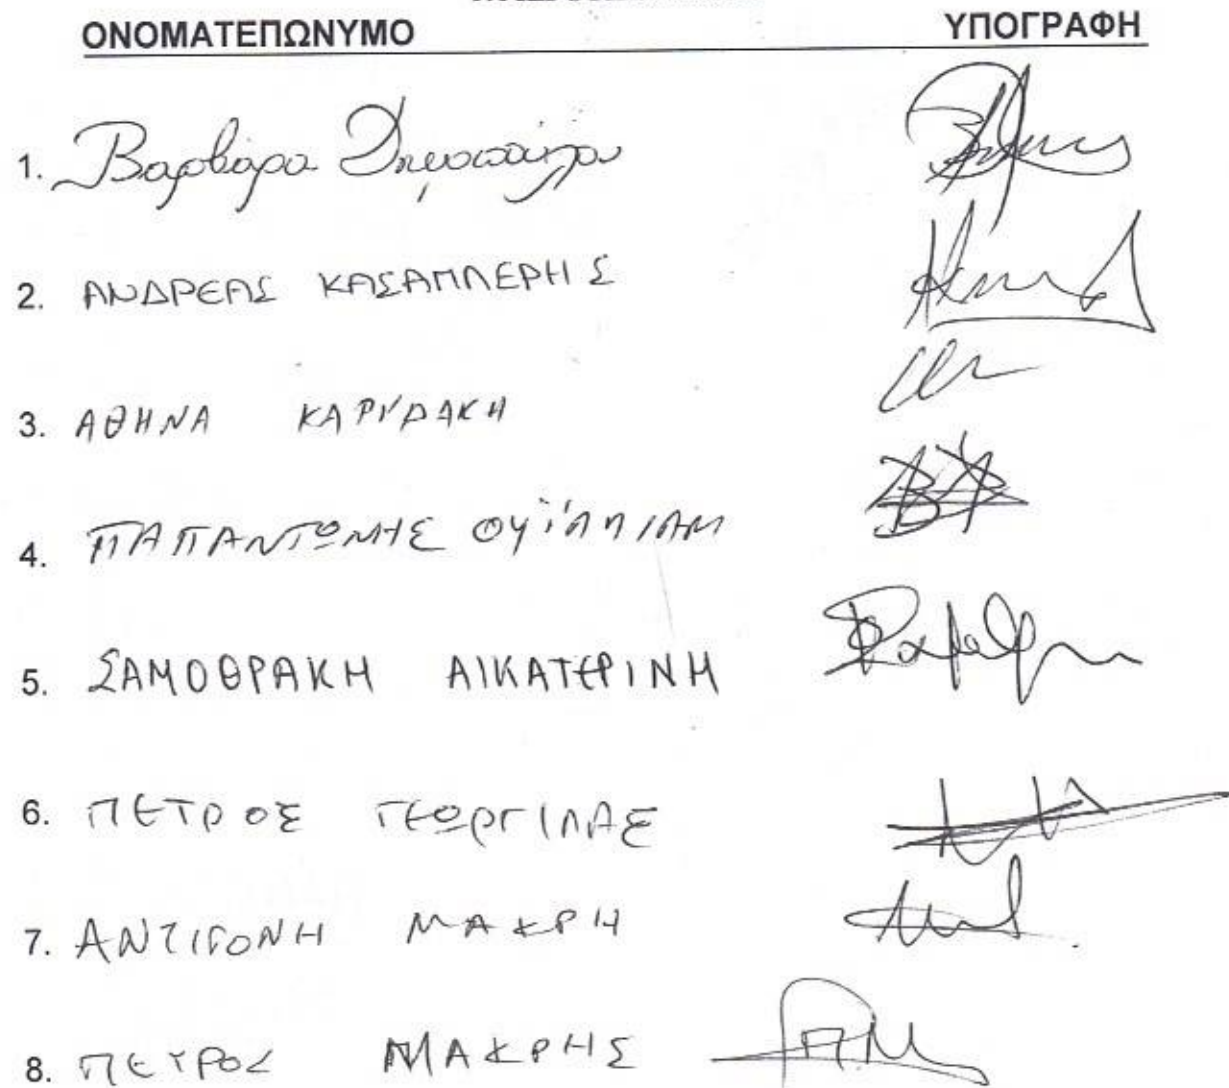 ΟΝΟΜΑΤΕΠΩΝΥΜΟ ΥΠΟΓΡΑΦΗ
1. Βαρβάρα
2. ΑΝΔΡΕΑΣ ΚΑΣΑΠΛΕΡΗΣ
3. ΑΘΗΝΑ ΚΑΡΥΔΑΚΗ
4. ΠΑΠΑΝΤΩΝΗΣ ΟΥΪΛΛΙΑΜ
5. ΣΑΜΟΘΡΑΚΗ ΑΙΚΑΤΕΡΙΝΗ
6. ΠΕΤΡΟΣ ΓΕΩΡΓΙΛΑΣ
7. ΑΝΤΙΓΟΝΗ ΜΑΚΡΗ
8. ΠΕΤΡΟΣ ΜΑΚΡΗΣ